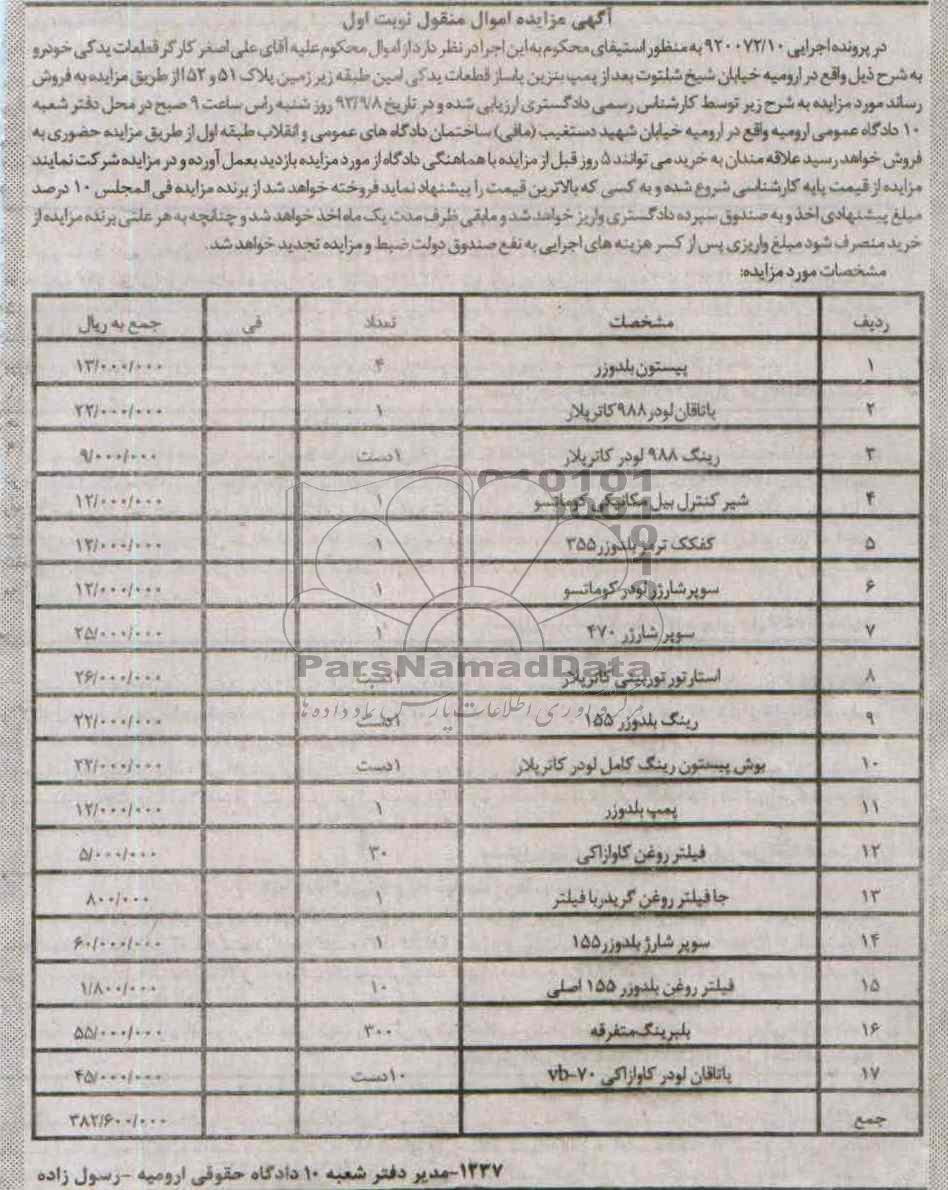 آگهی مزایده اموال منقول نوبت اول
در پرونده اجرایی ۹۲۰۰۷۲/۱۰ به منظور استیفای محکوم به این اجرا در نظر دارد از اموال محکوم علیه آقای علی اصغر کارگر قطعات یدکی خودرو
به شرح ذیل واقع در ارومیه خیابان شیخ شلتوت بعد از پمپ بنزین پاساژ قطعات یدکی امین طبقه زیر زمین پلاک ۵۱ و ۵۲ از طریق مزایده به فروش
رساند مورد مزایده به شرح زیر توسط کارشناس رسمی دادگستری ارزیابی شده و در تاریخ ۹۲/۹/۸ روز شنبه راس ساعت ۹ صبح در محل دفتر شعبه
۱۰ دادگاه عمومی ارومیه واقع در ارومیه خیابان شهید دستغیب (مافی) ساختمان دادگاه های عمومی و انقلاب طبقه اول از طریق مزایده حضوری به
فروش خواهد رسید علاقه مندان به خرید می توانند ۵ روز قبل از مزایده با هماهنگی دادگاه از مورد مزایده بازدید بعمل آورده و در مزایده شرکت نمایند
مزایده از قیمت پایه کارشناسی شروع شده و به کسی که بالاترین قیمت را پیشنهاد نماید فروخته خواهد شد از برنده مزایده فی المجلس ۱۰ درصد
مبلغ پیشنهادی اخذ و به صندوق سپرده دادگستری واریز خواهد شد و مابقی ظرف مدت یک ماه اخذ خواهد شد و چنانچه به هر علتی برنده مزایده از
خرید منصرف شود مبلغ واریزی پس از کسر هزینه های اجرایی به نفع صندوق دولت ضبط و مزایده تجدید خواهد شد.
مشخصات مورد مزایده:
ردیف مشخصات تعداد فی جمع به ریال
۱ پیستون بلدوزر ۴ ۱۳/۰۰۰/۰۰۰
۲ یاتاقان لودر ۹۸۸ کاترپلار ۱ ۲۲/۰۰۰/۰۰۰
۳ رینگ ۹۸۸ لودر کاترپلار ۱ دست ۹/۰۰۰/۰۰۰
۴ شیر کنترل بیل مکانیکی کوماتسو ۱ ۱۲/۰۰۰/۰۰۰
۵ کفکک ترمز بلدوزر ۳۵۵ ۱ ۱۲/۰۰۰/۰۰۰
۶ سوپرشارژر لودر کوماتسو ۱ ۱۲/۰۰۰/۰۰۰
۷ سوپر شارژر ۴۷۰ ۱ ۲۵/۰۰۰/۰۰۰
۸ استارتور توربینی کاترپلار ۱ دست ۲۶/۰۰۰/۰۰۰
۹ رینگ بلدوزر ۱۵۵ ۱ دست ۲۲/۰۰۰/۰۰۰
۱۰ بوش پیستون رینگ کامل لودر کاترپلار ۱ دست ۲۲/۰۰۰/۰۰۰
۱۱ پمپ بلدوزر ۱ ۱۲/۰۰۰/۰۰۰
۱۲ فیلتر روغن کاوازاکی ۳۰ ۵/۰۰۰/۰۰۰
۱۳ جا فیلتر روغن گریدر با فیلتر ۱ ۸۰۰/۰۰۰
۱۴ سوپر شارژ بلدوزر ۱۵۵ ۱ ۶۰/۰۰۰/۰۰۰
۱۵ فیلتر روغن بلدوزر ۱۵۵ اصلی ۱۰ ۱/۸۰۰/۰۰۰
۱۶ بلبرینگ متفرقه ۳۰۰ ۵۵/۰۰۰/۰۰۰
۱۷ یاتاقان لودر کاوازاکی vb-۷۰ ۱۰ دست ۴۵/۰۰۰/۰۰۰
جمع ۳۸۲/۶۰۰/۰۰۰
ParsNamadData
۱۲۳۷-مدیر دفتر شعبه ۱۰ دادگاه حقوقی ارومیه -رسول زاده